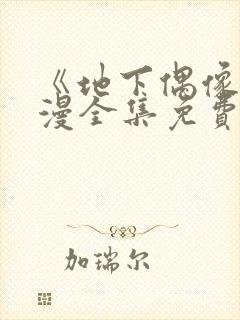 《地下偶像
漫全集免費
加瑞尔